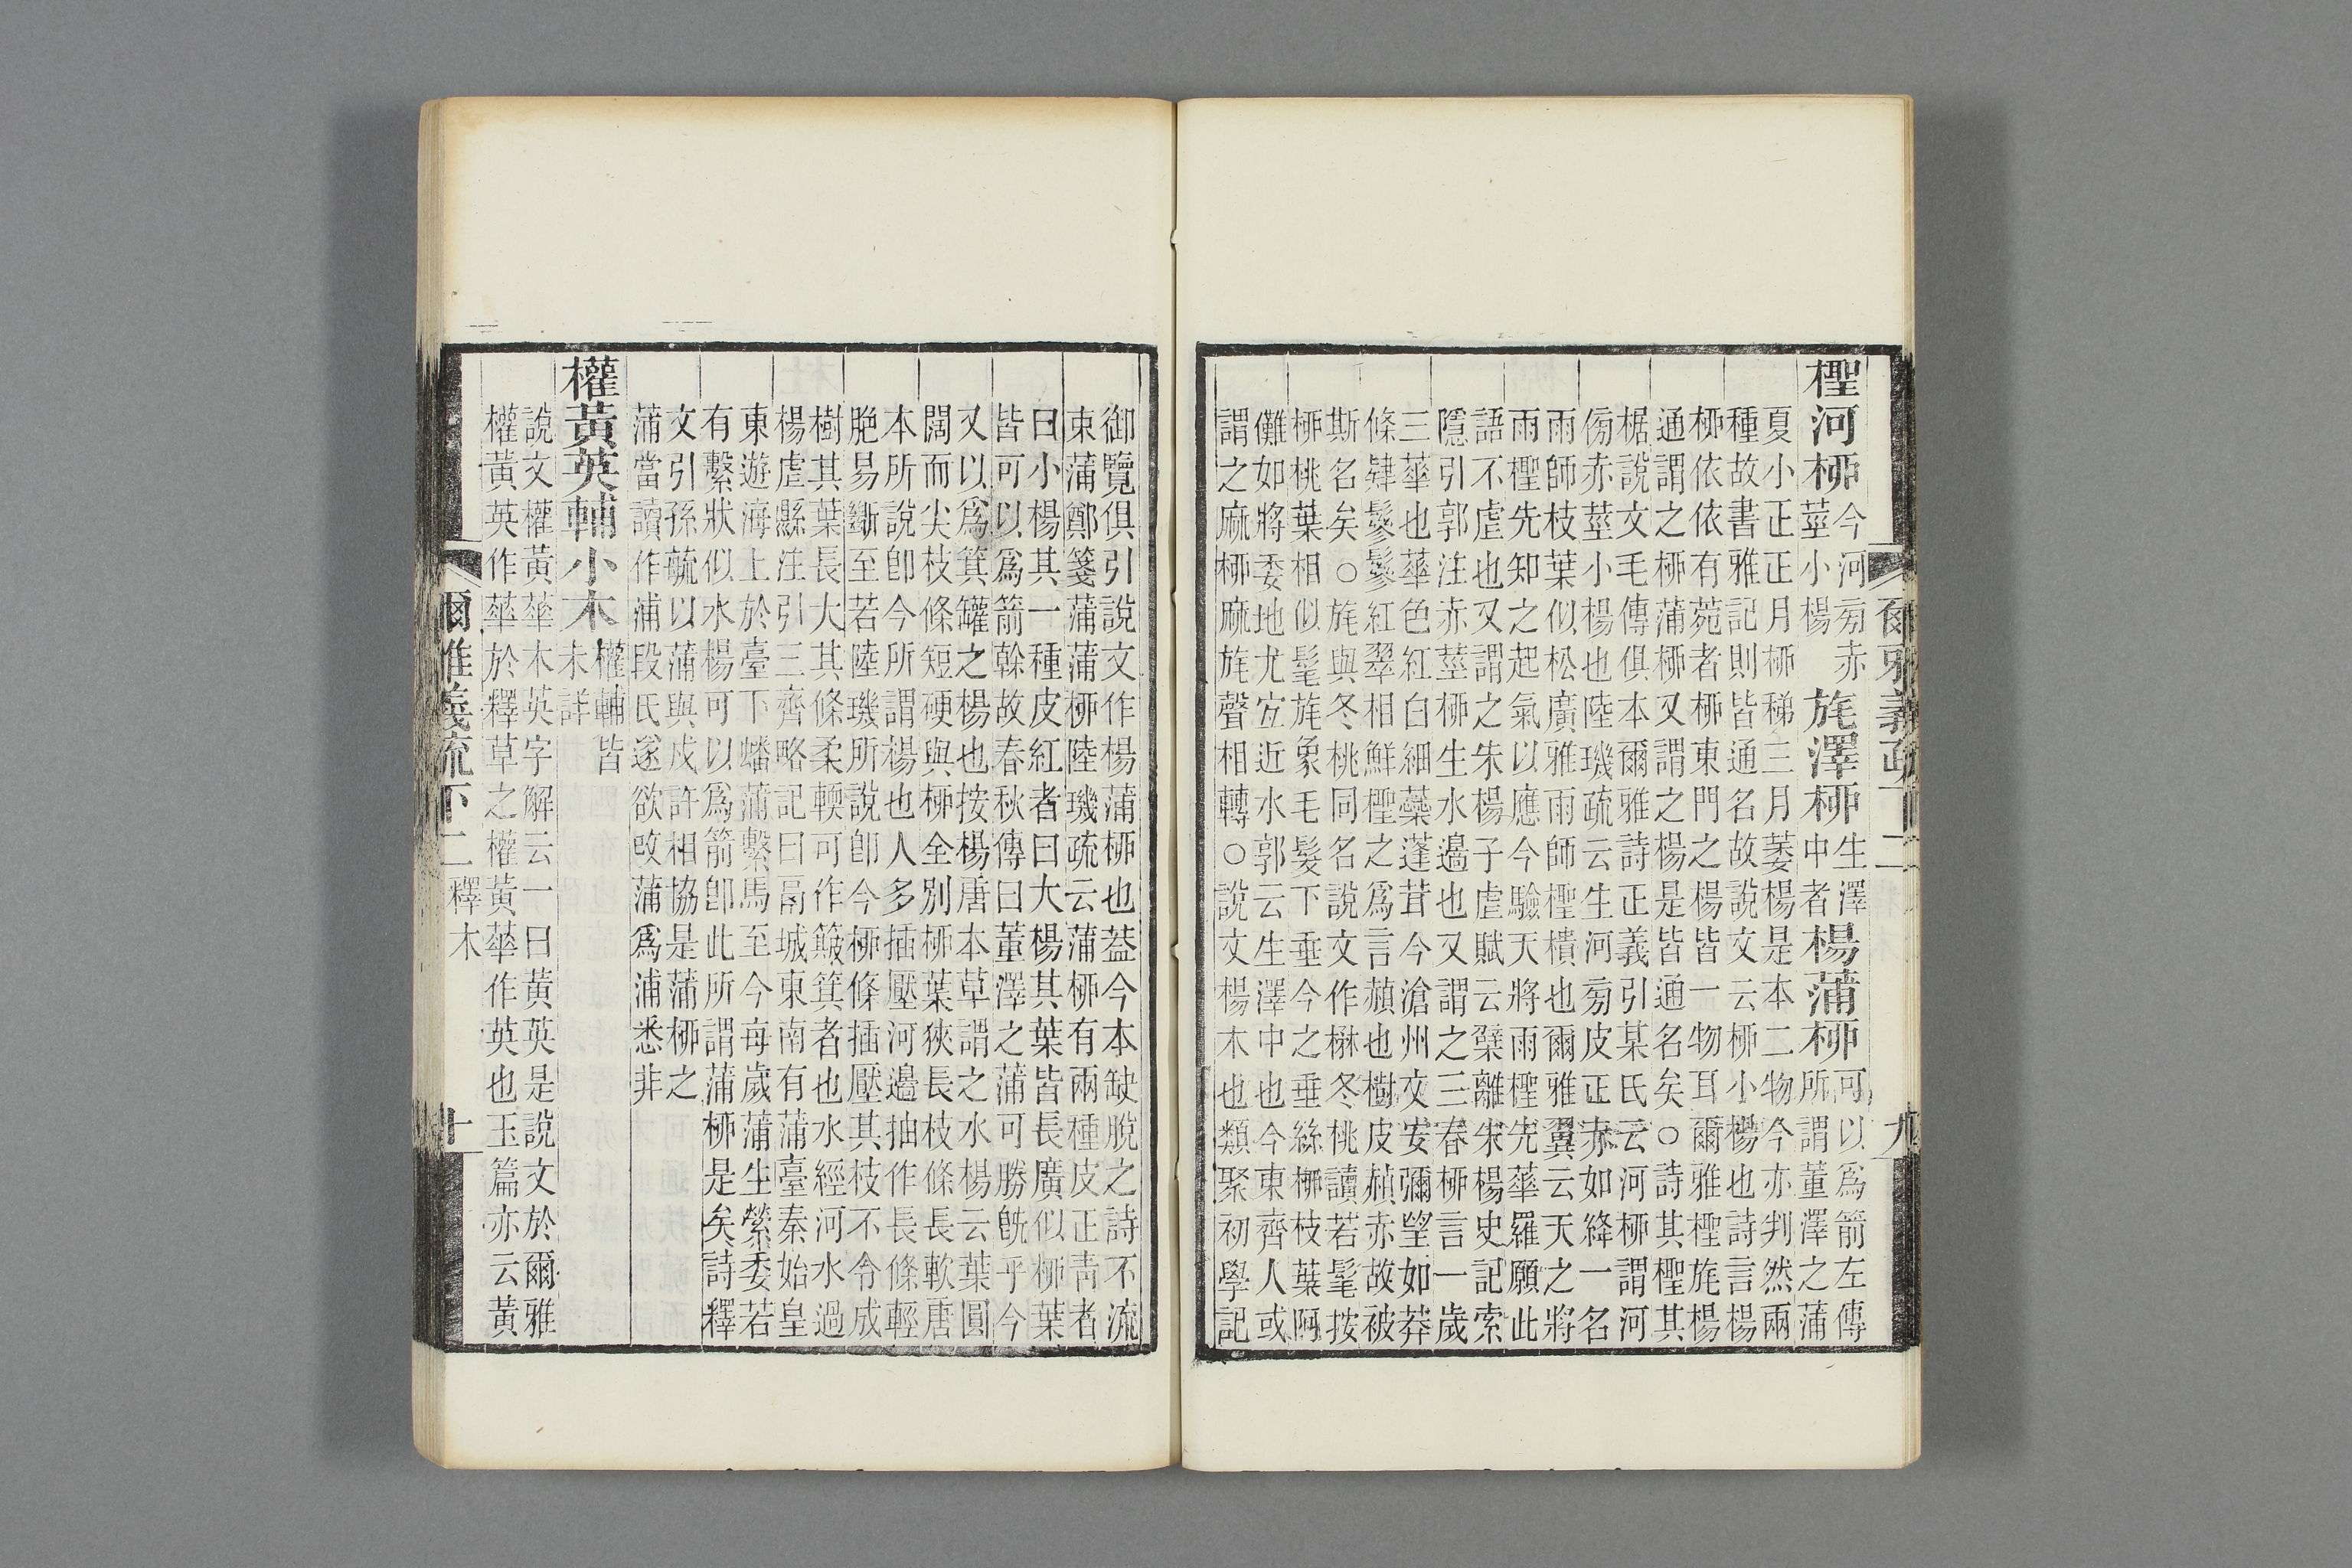 爾雅義疏下二　九
檉河柳今河旁赤莖小楊旄澤柳生澤中者楊蒲柳可以爲箭左傳所謂董澤之蒲
夏小正正月柳稊三月萎楊是本二物今亦判然兩
種故書雅記則皆通名故說文云柳小楊也詩言楊
柳依依有菀者柳東門之楊皆一物耳爾雅檉旄楊
通謂之柳蒲柳又謂之楊是皆通名矣○詩其檉其
椐說文毛傳俱本爾雅詩正義引某氏云河柳謂河
傍赤莖小楊也陸璣疏云生河旁皮正赤如絳一名
雨師枝葉似松廣雅雨師檉樻也爾雅翼云天之將
雨檉先知之起氣以應今驗天將雨檉先華羅願此
語不虛也又謂之朱楊子虛賦云檗離朱楊史記索
隱引郭注赤莖柳生水邊也又謂之三春柳言一歲
三華也華色紅白細蘂蓬茸今滄州文安彌望如莽
條肄鬖鬖紅翠相鮮檉之爲言赬也樹皮赬赤故被
斯名矣○旄與冬桃同名說文作楙冬桃讀若髦按
柳桃葉相似髦旄象毛髮下垂今之垂絲柳枝葉阿
儺如將委地尤宜近水郭云生澤中也今東齊人或
謂之麻柳麻旄聲相轉○說文楊木也類聚初學記
御覽俱引說文作楊蒲柳也葢今本缺脫之詩不流
束蒲鄭箋蒲蒲柳陸璣疏云蒲柳有兩種皮正青者
曰小楊其一種皮紅者曰大楊其葉皆長廣似柳葉
皆可以爲箭榦故春秋傳曰董澤之蒲可勝旣乎今
又以爲箕罐之楊也按楊唐本草謂之水楊云葉圓
闊而尖枝條短硬與柳全別柳葉狹長枝條長軟唐
本所說卽今所謂楊也人多插壓河邊抽作長條輕
脃易斷至若陸璣所說卽今柳條插壓其枝不令成
樹其葉長大其條柔輭可作簸箕者也水經河水過
楊虛縣注引三齊略記曰鬲城東南有蒲臺秦始皇
東遊海上於臺下蟠蒲繫馬至今每歲蒲生縈委若
有繫狀似水楊可以爲箭卽此所謂蒲柳是矣詩釋
文引孫毓以蒲與戍許相協是蒲柳之
蒲當讀作浦段氏遂欲改蒲爲浦悉非
權黃英輔小木權輔皆未詳
說文權黃華木英字解云一曰黃英是說文於爾雅
權黃英作華於釋草之權黃華作英也玉篇亦云黃
爾雅義疏下二　釋木　十